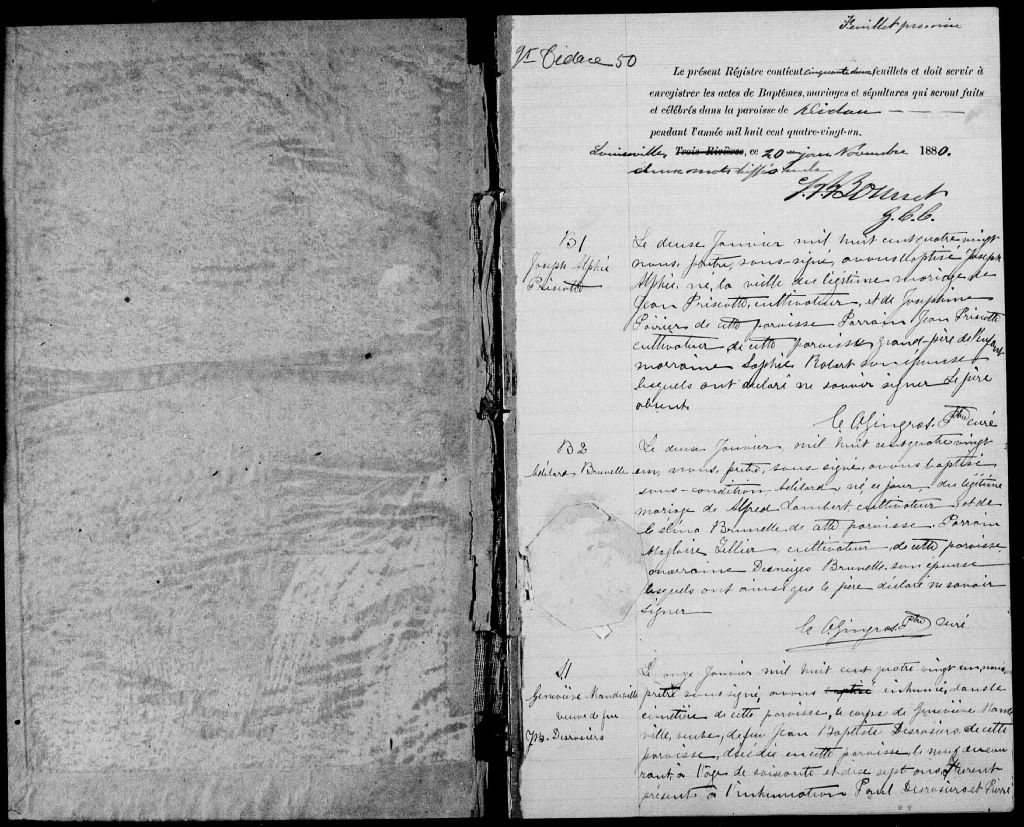 Feuillet premier
St Didace 50
Le présent Régistre contient cinquante deux feuillets et doit servir à
enregistrer les actes de Baptêmes, mariages et sépultures qui seront faits
et célébrés dans la paroisse de St Didace
pendant l'année mil huit cent quatre-vingt-un.
Louiseville, Trois-Rivières, ce 20 jour Novembre 1880.
deux mots biffés nuls
G. C. C.
B 1
Joseph Alphé
Priscotte
Le deuse Janvier mil huit cent quatre vingt
nous, prêtre, sous-signé, avons baptisé Joseph
Alphé, né, la veille du légitime mariage de
Jean Priscotte, cultivateur, et de Josephine
Poirier de cette paroisse Parrain Jean Priscotte
cultivateur de cette paroisse, grand-père de l'enfant
marraine Sophie Robert son épouse
lesquels ont déclaré ne savoir signer Le père
absent.
C. A. Gingras. Ptre curé
B 2
Adélard Brunelle
Le deuse Janvier mil huit cent quatre vingt
un, nous, prêtre, sous-signé, avons baptisé
sous-condition Adélard né, ce jour, du légitime
mariage de Alfred Lambert, cultivateur, et de
Célina Brunelle de cette paroisse. Parrain
Magloire Tellier, cultivateur, de cette paroisse
marraine Desneiges Brunelle. son épouse
lesquels ont ainsi que le père déclaré ne savoir
signer
C. A. Gingras. Ptre curé
S 1
Geneviève Mandeville
veuve de feu
J. B. Desrosiers
Le onze Janvier mil huit cent quatre vingt un, nous,
prêtre sous signé, avons baptisé inhumé, dans le
cimetière de cette paroisse, le corps de Geneviève Mande
ville, veuve, de feu Jean Baptiste Desrosiers de cette
paroisse, décédée en cette paroisse le neuf du cou
rant, à l'age de soixante et dise sept ans. Furent
présent à l'inhumation Paul Desrosiers et Pierre